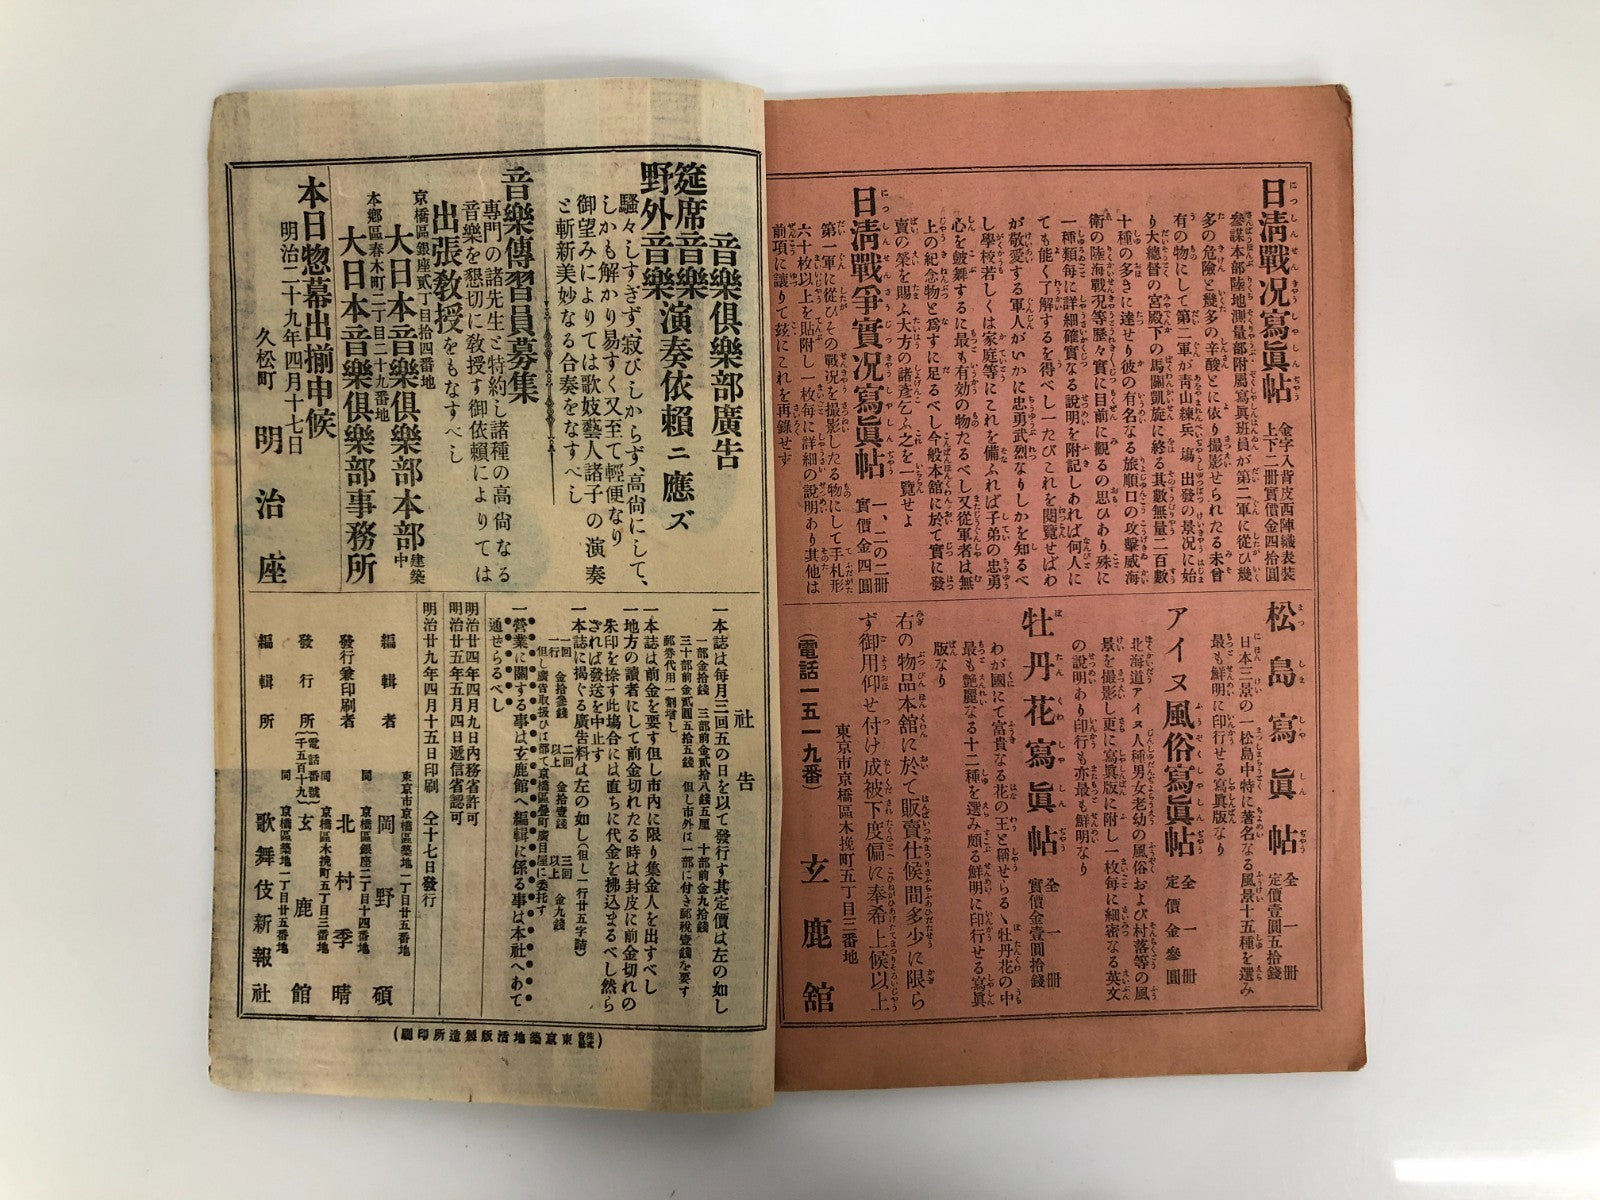 日淸戰况寫眞帖
金字入背皮西陣織表裝
上下二冊實價金四拾圓
參謀本部陸地測量部附屬寫眞班員が第二軍に從ひ幾
多の危險と幾多の辛酸とに依り撮影せられたる未曾
有の物にして第二軍が靑山練兵塲出發の景況に始
り大總督の宮殿下の馬關凱旋に終る其數無量二百數
十種の多きに達せり彼の有名なる旅順口の攻擊威海
衛の陸海戰況等歷々實に目前に觀るの思ひあり殊に
一種類每に詳細確實なる說明を附記しあれば何人に
ても能く了解するを得べし一たびこれを閱覽せばわ
が敬愛する軍人がいかに忠勇武烈なりしかを知るべ
し學校若しくは家庭等にこれを備ふれば子弟の忠勇
心を皷舞するに最も有効の物たるべし又從軍者は無
上の紀念物と爲すに足るべし今般本舘に於て實に發
賣の榮を賜ふ大方の諸彥乞ふ之を一覽せよ
日淸戰爭實況寫眞帖
一、二の二冊
實價金四圓
第一軍に從ひその戰況を撮影したる物にして手札形
六十枚以上を貼附し一枚每に詳細の說明あり其他は
前項に讓りて玆にこれを再錄せず
松島寫眞帖
全一冊
定價壹圓五拾錢
日本三景の一松島中特に著名なる風景十五種を選み
最も鮮明に印行せる寫眞版なり
アイヌ風俗寫眞帖
全一冊
定價金參圓
北海道アイヌ人種男女老幼の風俗および村落等の風
景を撮影し更に寫眞版に附し一枚每に細密なる英文
の說明あり印行も亦最も鮮明なり
牡丹花寫眞帖
全一冊
實價金壹圓拾錢
わが國にて富貴なる花の王と稱せらるゝ牡丹花の中
最も艶麗なる十二種を選み頗る鮮明に印行せる寫眞
版なり
右の物品本舘に於て販賣仕候間多少に限ら
ず御用仰せ付け成被下度偏に奉希上候以上
東京市京橋區木挽町五丁目三番地
(電話一五一九番)
玄鹿舘
音樂俱樂部廣告
筵席音樂
野外音樂
演奏依賴ニ應ズ
騷々しすぎず、寂びしからず、高尙にして、
しかも解かり易すく又至て輕便なり
御望みによりては歌妓藝人諸子の演奏
と斬新美妙なる合奏をなすべし
音樂傳習員募集
專門の諸先生と特約し諸種の高尙なる
音樂を懇切に敎授す御依賴によりては
出張敎授をもなすべし
京橋區銀座貳丁目拾四番地
大日本音樂俱樂部本部建築中
本鄕區春木町二丁目二十九番地
大日本音樂俱樂部事務所
本日惣幕出揃申候
明治二十九年四月十七日
久松町
明治座
社告
一本誌は每月三回五の日を以て發行す其定價は左の如し
一部金拾錢 三部前金貳拾八錢五厘 十部前金九拾錢
三十部前金貳圓五拾五錢 但し市外は一部に付き郵稅壹錢を要す
郵券代用一割增し
一本誌は前金を要す但し市內に限り集金人を出すべし
一地方の讀者にして前金切れたる時は封皮に前金切れの
朱印を捺す此塲合には直ちに代金を拂込まるべし然ら
ざれば發送を中止す
一本誌に揭ぐる廣告料は左の如し(但し一行廿五字詰)
一回一行 金拾參錢 二回以上 金拾壹錢 三回以上 金九錢
但し廣告取扱ひは都て京橋區疊町廣目屋に委托す
一營業に關する事は玄鹿館へ編輯に係る事は本社へあて
通せらるべし
明治廿四年四月九日內務省許可
明治廿五年五月四日遞信省認可
明治廿九年四月十五日印刷 仝十七日發行
東京市京橋區築地一丁目廿五番地
編輯者 岡野碩
同 京橋區銀座二丁目十四番地
發行兼印刷者 北村季晴
同 京橋區木挽町五丁目三番地
發行所 (電話番號千五百十九) 玄鹿館
同 京橋區築地一丁目廿五番地
編輯所 歌舞伎新報社
(株式會社東京築地活版製造所印刷)